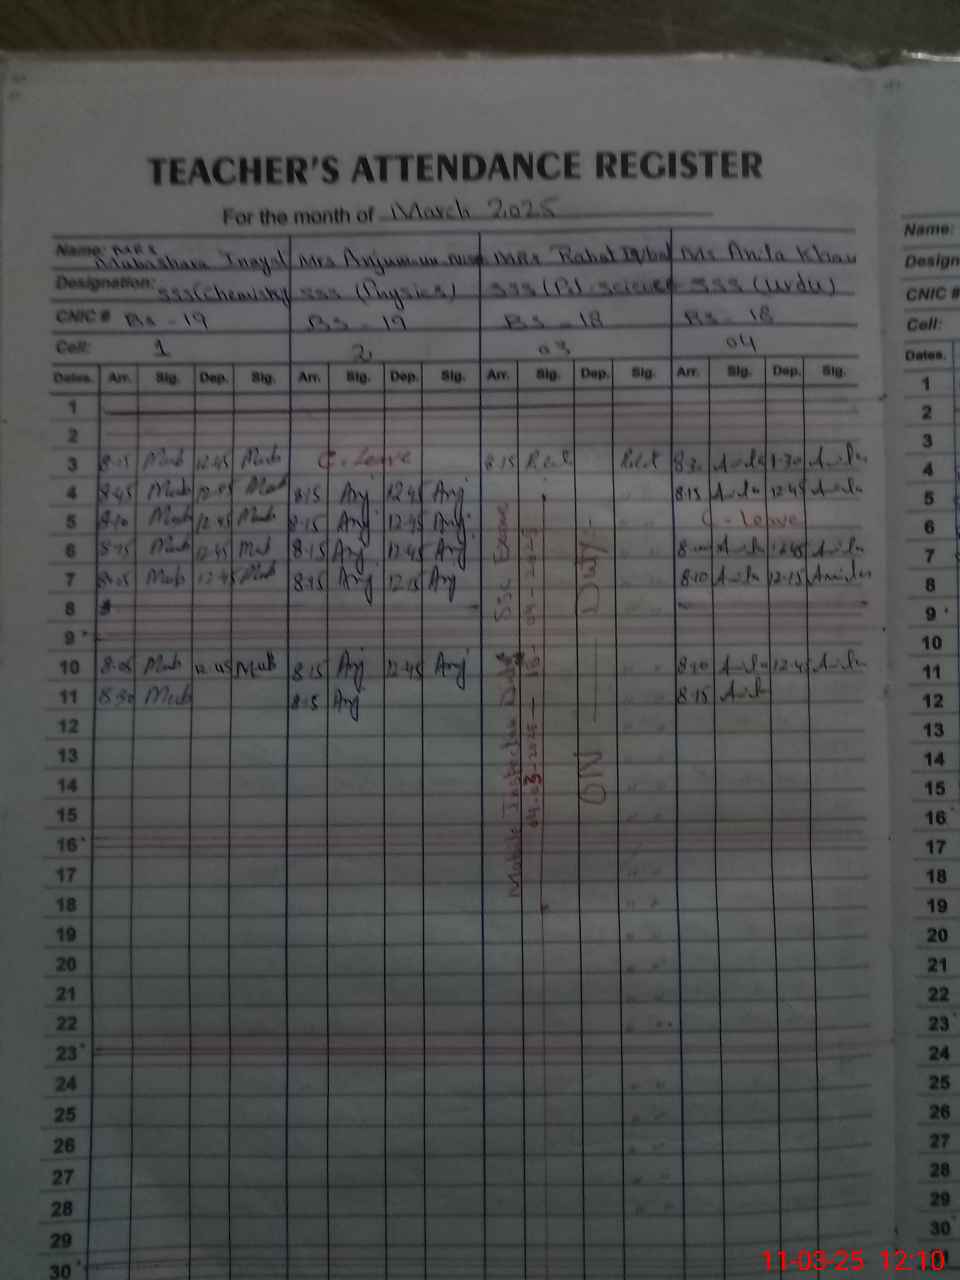 TEACHER'S ATTENDANCE REGISTER
For the month of March 2025
Name: MRS Mubashara Inayat Mrs Anjuman MRS Rahat Iqbal Ms Anila Khan
Designation: SSS (Chemistry) SSS (Physics) SSS (Pol. Science SSS (Urdu)
CNIC # BS-19 BS-19 BS-18 BS-18
Cell: 1 2 03 04
Dates. Arr. Sig. Dep. Sig. Arr. Sig. Dep. Sig. Arr. Sig. Dep. Sig. Arr. Sig. Dep. Sig.
1
2
3 8-15 Mub 12-45 Mub C. Leave 8.15 1-30 Anila
4 8-45 Mub Mub 8.15 Anj 12.45 Anj 8.15 Anila 12.45 Anila
5 8.10 Mub 12.45 Mub 8.15 Anj 12.45 Anj C. Leave
6 Mub 12.45 Mub 8.15 Anj 12.45 Anj Anila 12.45 Anila
7 Mub 12.45 Mub 8.15 Anj 12.15 Anj 8.10 Anila 12.15 Anila
8
9
10 8.05 Mub 12.45 Mub 8.15 Anj 12.45 Anj Anila 12.45 Anila
11 8.30 Mub 8.15 Anj 8.15 Anila
12
13
14
15
16
17
18
19
20
21
22
23
24
25
26
27
28
29
30
Mobile Inspector Duty SSC Exam
04-03-2025
ON DUTY
Name:
Design
CNIC #
Cell:
Dates.
1
2
3
4
5
6
7
8
9
10
11
12
13
14
15
16
17
18
19
20
21
22
23
24
25
26
27
28
29
30
11-03-25 12:10